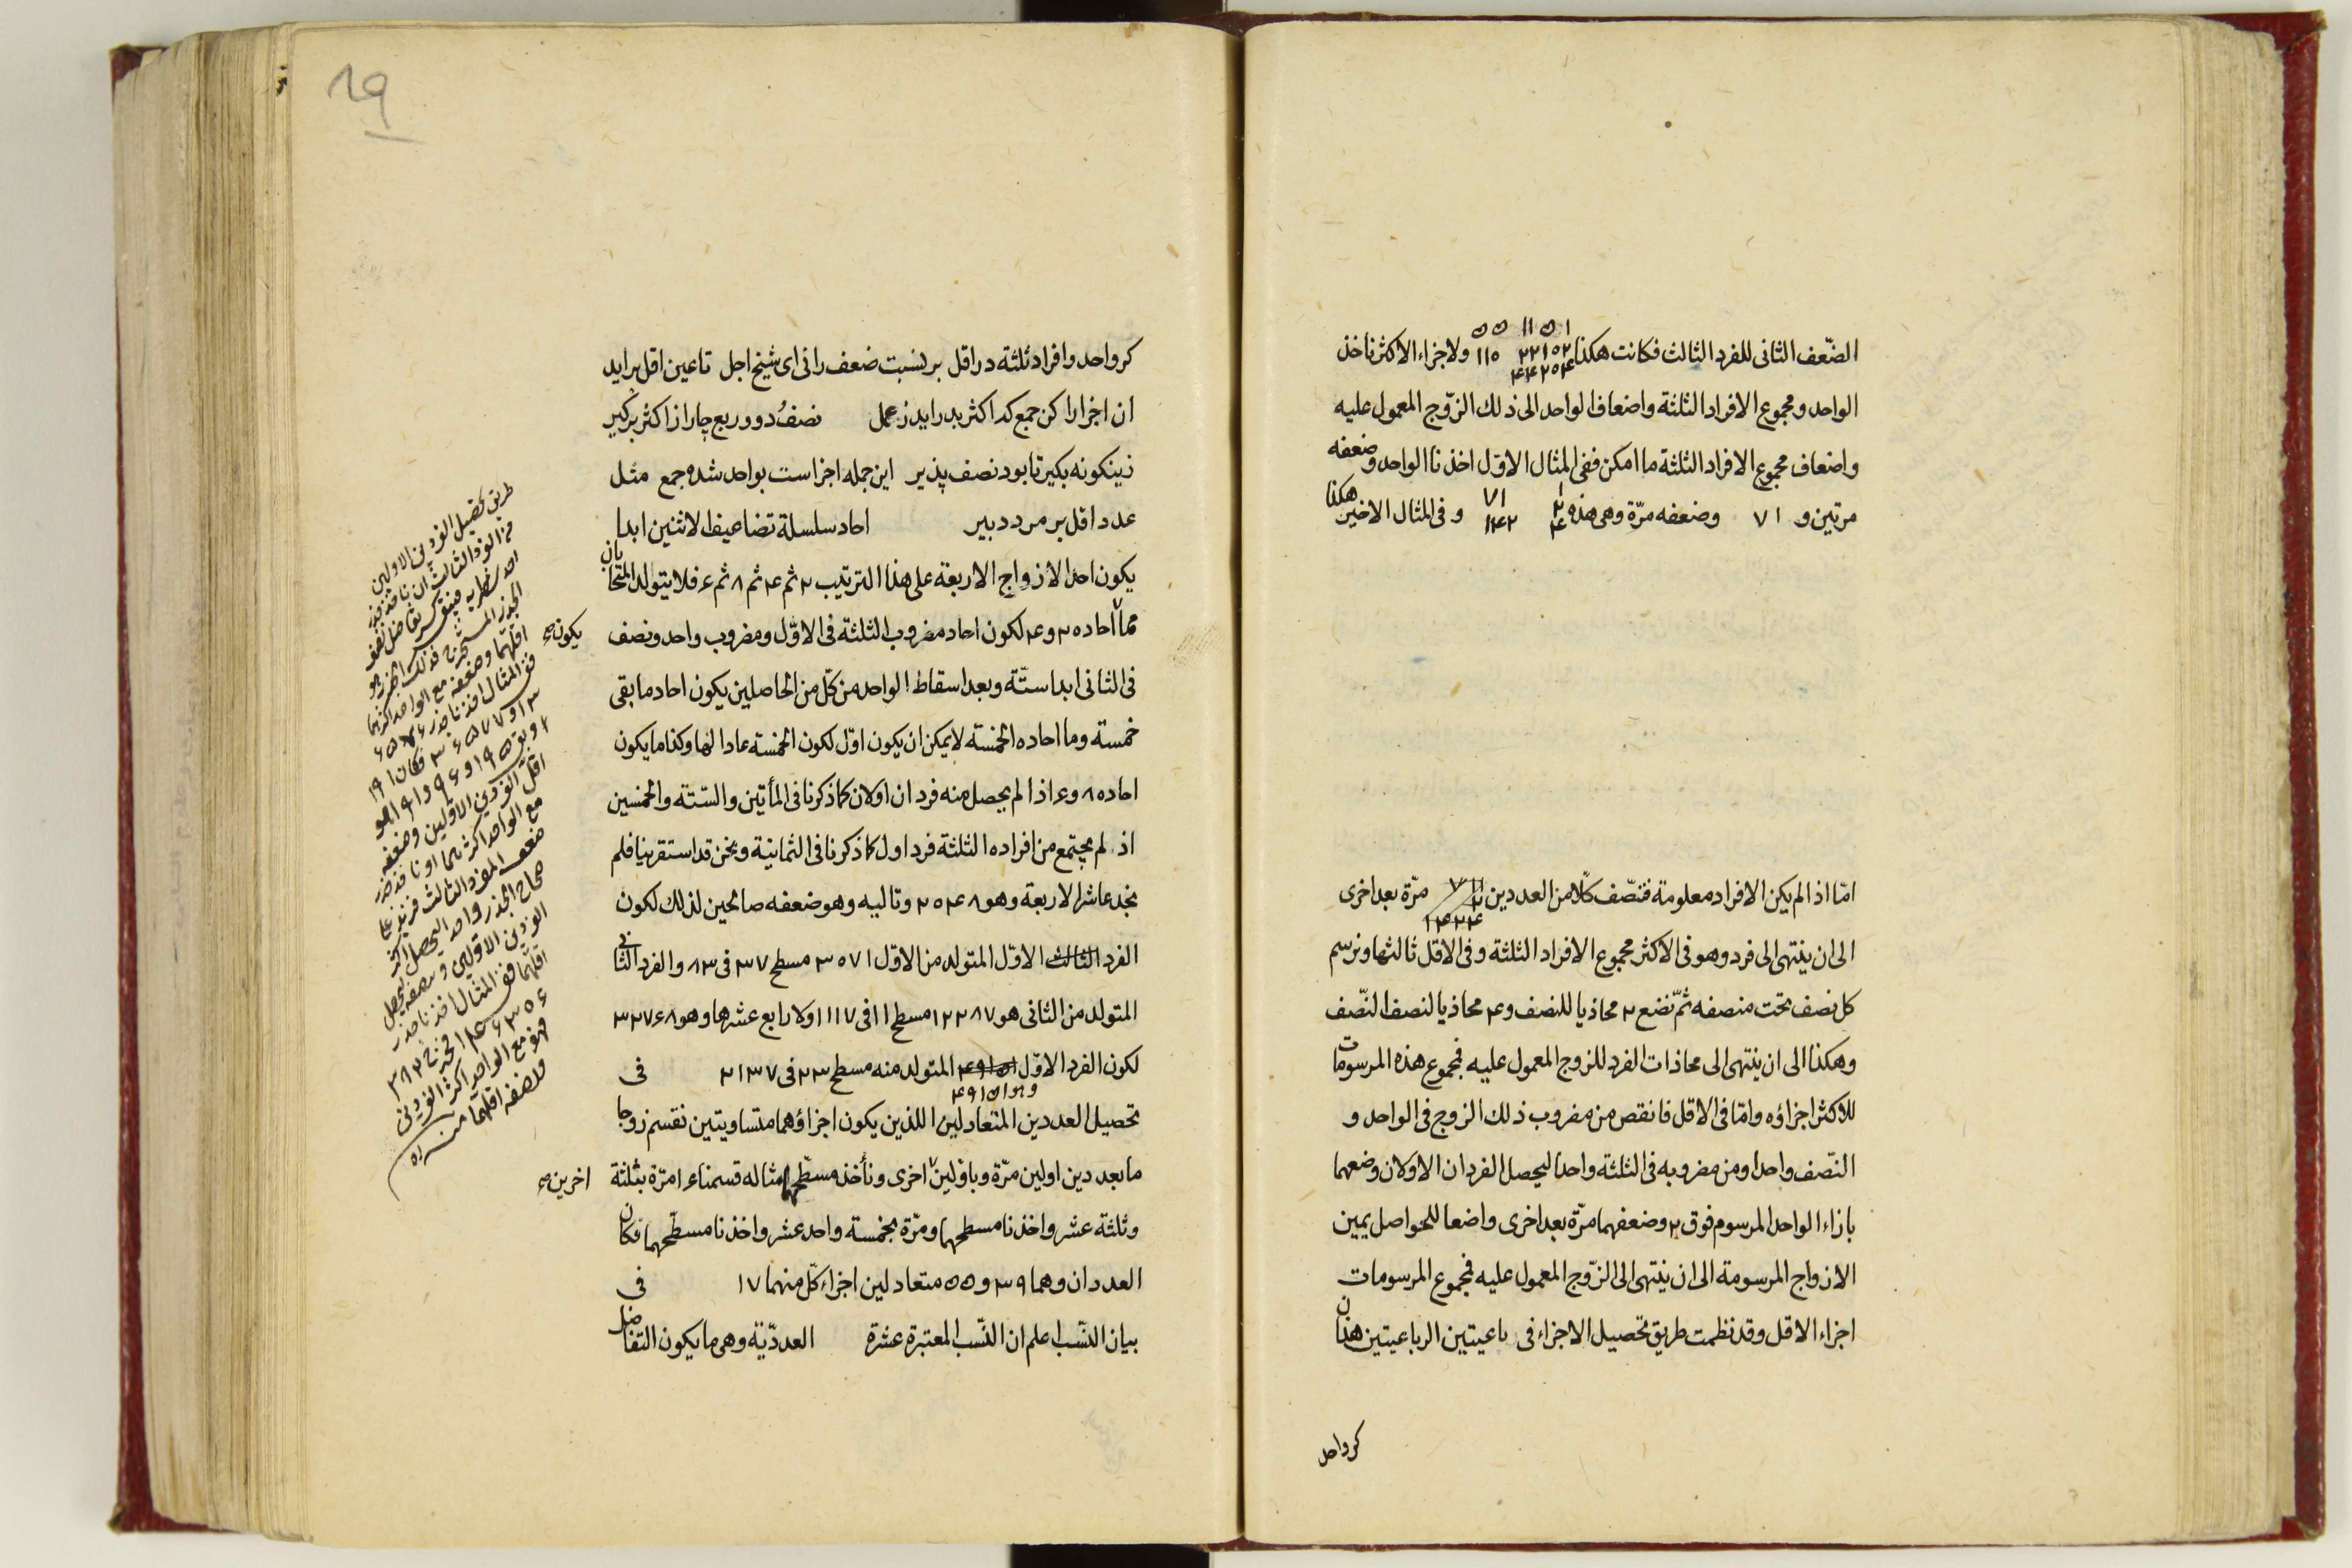 الضّعف الثانی للفرد الثالث فکانت هکذا ولاجزاء الاکثر ناخذ
۱ ۵ ۱۱ ۵۵
۲ ۱۰ ۲۲ ۱۱۰
۴ ۲۰ ۴۴
الواحد ومجموع الافراد الثلثة واضعاف الواحد الی ذلک الزّوج المعمول علیه
واضعاف مجموع الافراد الثلثة ما امکن ففی المثال الاوّل اخذنا الواحد وضعفه
مرتین و ۷۱ وضعفه مرّة وهی هذه ۱ ۲ ۴ ۷۱ ۱۴۲ و فی المثال الاخیر هکذا
امّا اذا لم یکن الافراد معلومة فننصّف کلّا من العددین مرّة بعد اخری
الی ان ینتهی الی فرد وهو فی الاکثر مجموع الافراد الثلثة وفی الاقل ثالثها ونرسم
کل نصف تحت منصفه ثمّ نضع ۲ محاذیا للنصف و ۴ محاذیا لنصف النّصف
وهکذا الی ان ینتهی الی محاذات الفرد للزوج المعمول علیه فمجموع هذه المرسومات
للاکثر اجزاؤه وامّا فی الاقل فانقص من مضروب ذلک الزوج فی الواحد و
النّصف واحدا ومن مضروبه فی الثلثة واحدا لیحصل الفردان الاولان وضعهما
بازاء الواحد المرسوم فوق ۲ وضعفهما مرّة بعد اخری واضعا للحواصل یمین
الازواج المرسومة الی ان ینتهی الی الزّوج المعمول علیه فمجموع المرسومات
اجزاء الاقل وقد نظمت طریق تحصیل الاجزاء فی باعیتین الرباعیتین هذان
کرواحد
۱۹
کرواحد وافراد ثلثة در اقل بر نسبت ضعف رانی ای شیخ اجل تا عین اقل براید
ان اجزا را کن جمع که اکثر بدراید ز عمل نصفُ دو وربع چار از اکثر برگیر
زینکونه بکیر تا بود نصف پذیر این جمله اجزاست بواحد شده جمع مثل
عدد اقل بر مرد دبیر احاد سلسلة تضاعیف الاثنین ابدا
یکون احد الازواج الاربعة علی هذا الترتیب ۲ ثم ۴ ثم ۸ ثم ۶ فلا یتولد المتحابان
ممّا احاده ۲ و ۴ لکون احاد مضروب الثلثة فی الاوّل ومضروب واحد ونصف
یکون صح
فی الثانی ابدا ستّة وبعد اسقاط الواحد من کلّ من الحاصلین یکون احاد ما بقی
خمسة وما احاده الخمسة لا یمکن ان یکون اوّل لکون الخمسة عادا لها وکذا ما یکون
احاده ۸ و ۶ اذا لم یحصل منه فردان اولان کما ذکرنا فی المأتین والستّة والخمسین
اذ لم یجتمع من افراده الثلثة فرد اول کما ذکرنا فی الثمانیة ونحن قد استقرینا فلم
نجد عاشر الاربعة وهو ۲۰۴۸ وتالیه وهو ضعفه صالحین لذلک لکون
الفرد الثالث الاوّل المتولد من الاوّل ۳۰۷۱ مسطح ۳۷ فی ۸۳ والفرد الثانی
المتولد من الثانی هو ۱۲۲۸۷ مسطح ۱۱ فی ۱۱۱۷ ولا رابع عشرها وهو ۳۲۷۶۸
لکون الفرد الاوّل المتولد منه مسطح ۲۳ فی ۲۱۳۷ فی
وهو ۴۹۱۵۱
تحصیل العددین المتعادلین اللذین یکون اجزاؤهما متساویتین نقسم زوجا
ما بعددین اولین مرّة وباوّلین اخری ونأخذ مسطّحهما مثاله قسمنا ۱۶ مرّة بثلثة
اخرین صح
وثلثة عشر واخذنا مسطحهما ومرّة بخمسة واحد عشر واخذنا مسطّحهما فکان
العددان وهما ۳۹ و ۵۵ متعادلین اجزاء کلّ منهما ۱۷ فی
بیان النسّب اعلم ان النّسب المعتبرة عشرة العددّیة وهی ما یکون التفاضل
طریق تحصیل الفردین الاولین
من الفرد الثالث ان ناخذ جذر
اقل الفردین الاولین وضعفه
مع الواحد اکثرهما او ناخذ جذر
ضعف الفرد الثالث